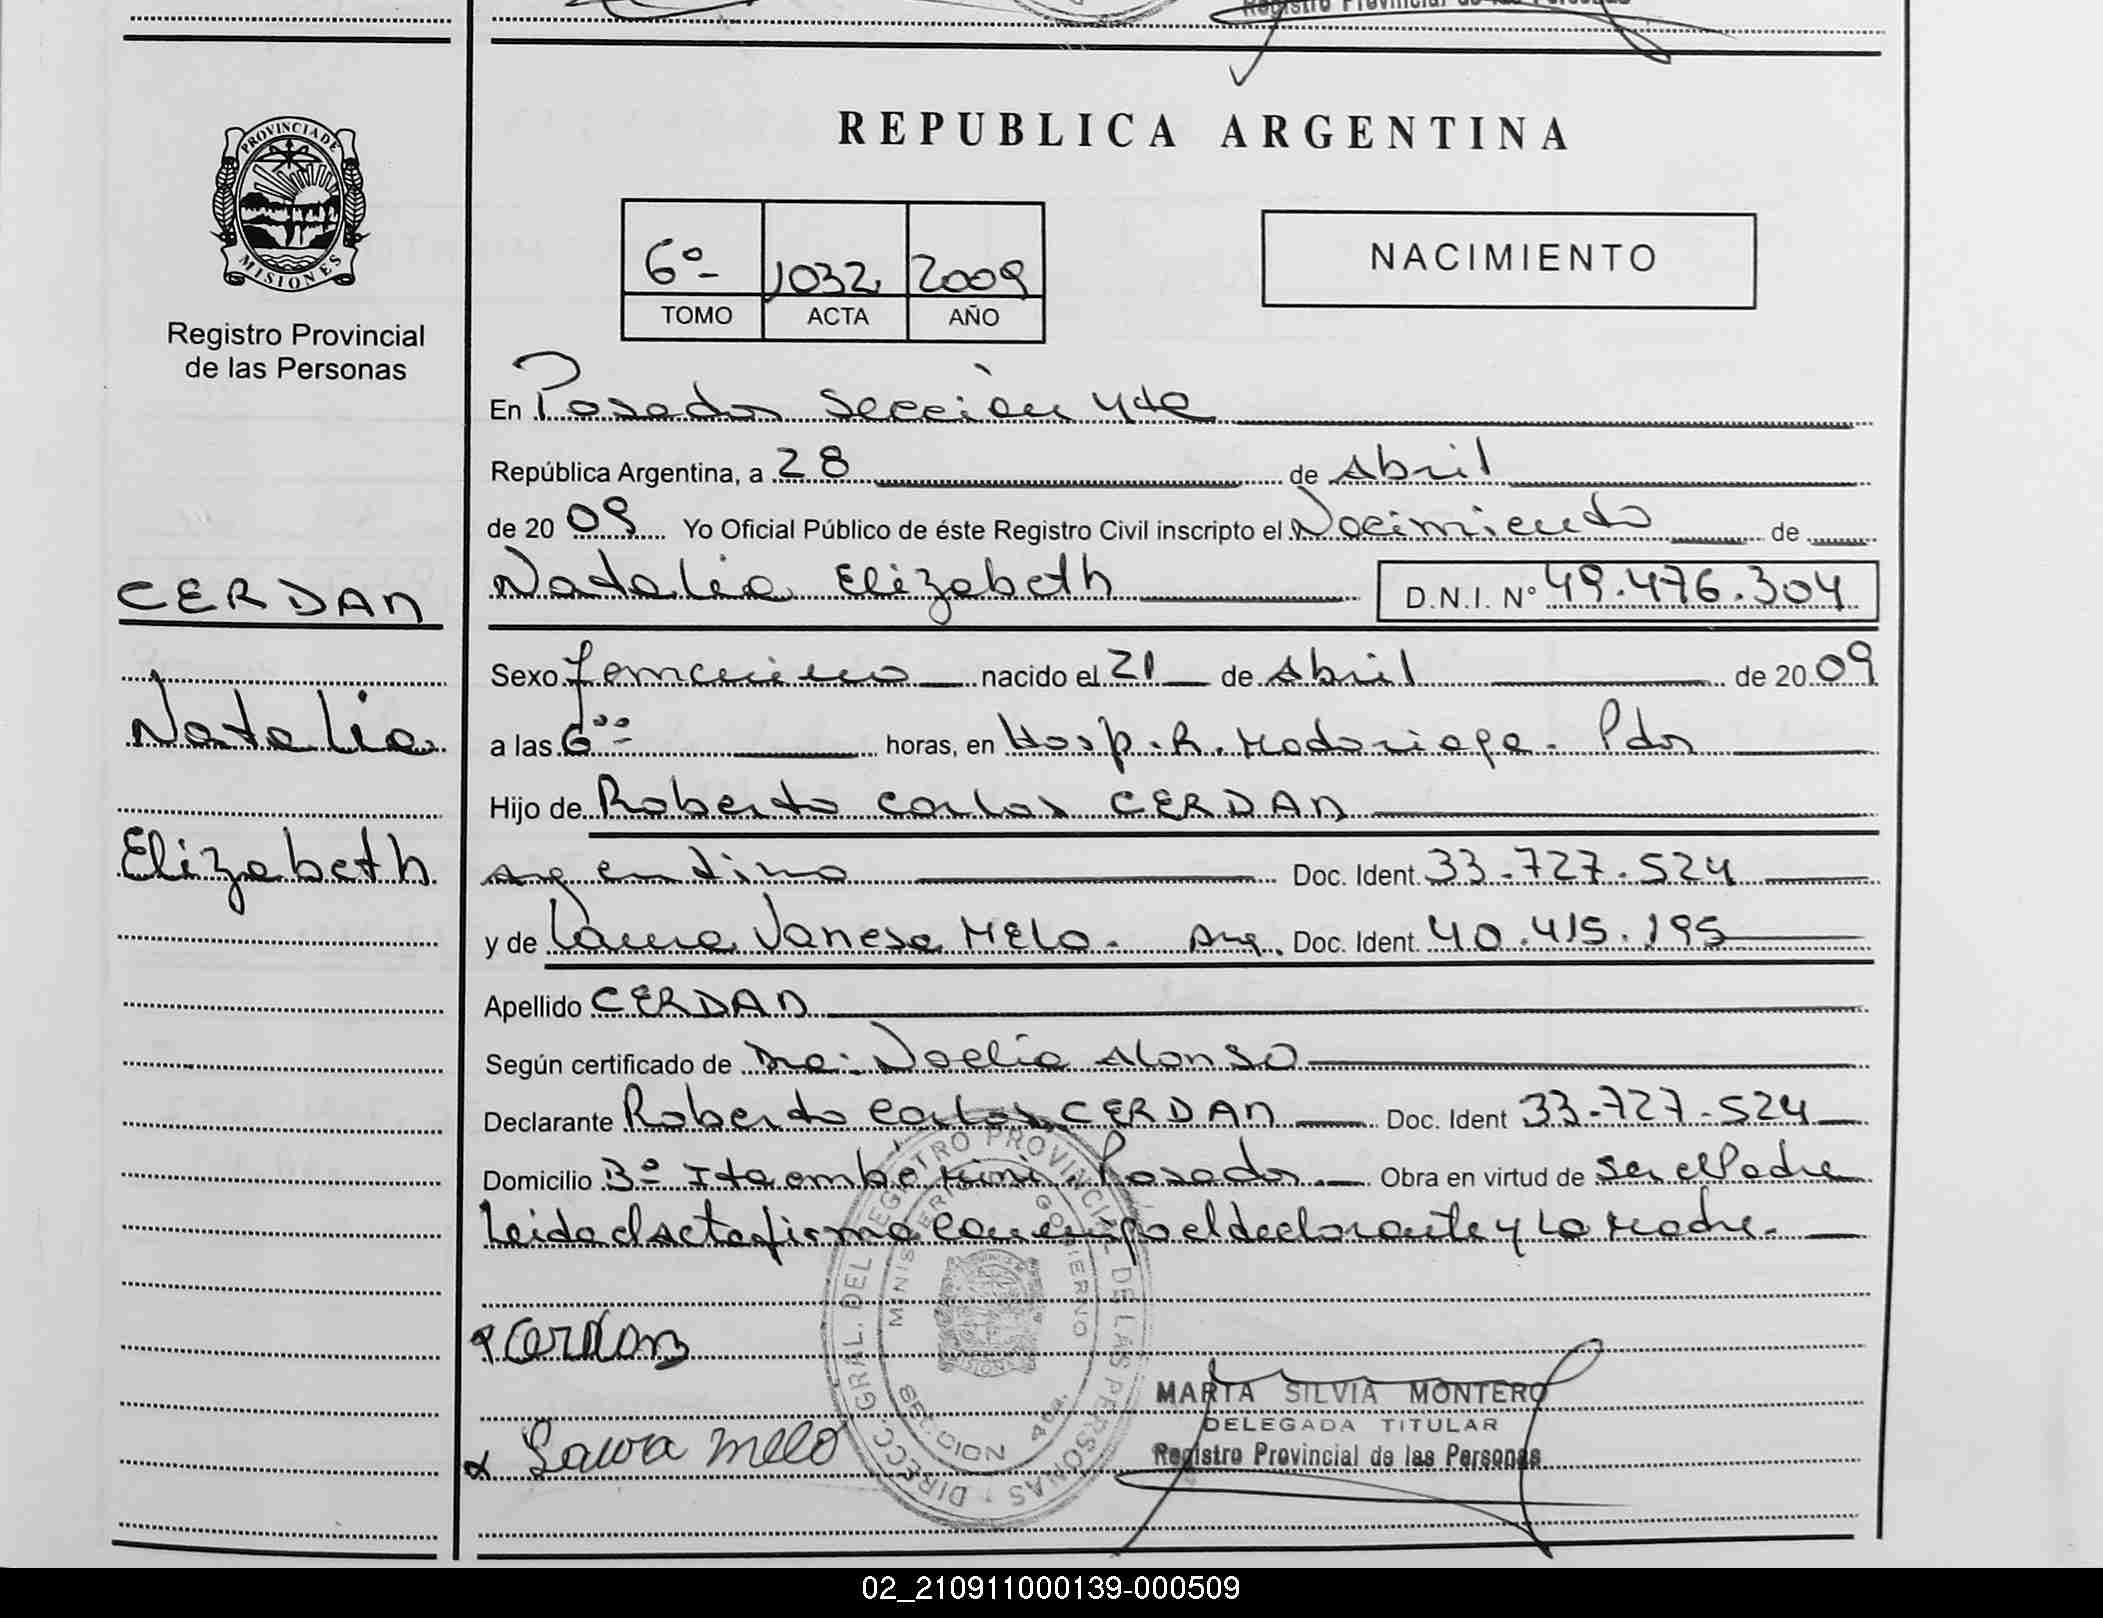 Registro Provincial de las Personas
PROVINCIA DE
MISIONES
Registro Provincial
de las Personas
REPUBLICA ARGENTINA
6º 1032 2009
TOMO ACTA AÑO
NACIMIENTO
En Posadas Sección 4ta
República Argentina, a 28 de Abril
de 2009 Yo Oficial Público de éste Registro Civil inscripto el Nacimiento de
CERDAN
Natalia Elizabeth D.N.I. Nº 49.476.304
Sexo femenino nacido el 21 de Abril de 2009
Natalia
a las 6ºº horas, en Hosp. R. Madariaga. Pdas
Hijo de Roberto Carlos CERDAN
Elizabeth
argentino Doc. Ident. 33.727.524
y de Laura Vanesa MELO. Arg. Doc. Ident. 40.415.195
Apellido CERDAN
Según certificado de Dra. Noelia Alonso
Declarante Roberto Carlos CERDAN Doc. Ident 33.727.524
Domicilio Bº Itaembe Mini. Posadas Obra en virtud de ser el Padre
Leida el acta firma conmigo el declarante y la madre.
DIRECC. GRAL. DEL REGISTRO PROVINCIAL DE LAS PERSONAS
MINISTERIO GOBIERNO
SECCION 4ta.
Cerdan
Laura Melo
MARTA SILVIA MONTERO
DELEGADA TITULAR
Registro Provincial de las Personas
02_210911000139-000509